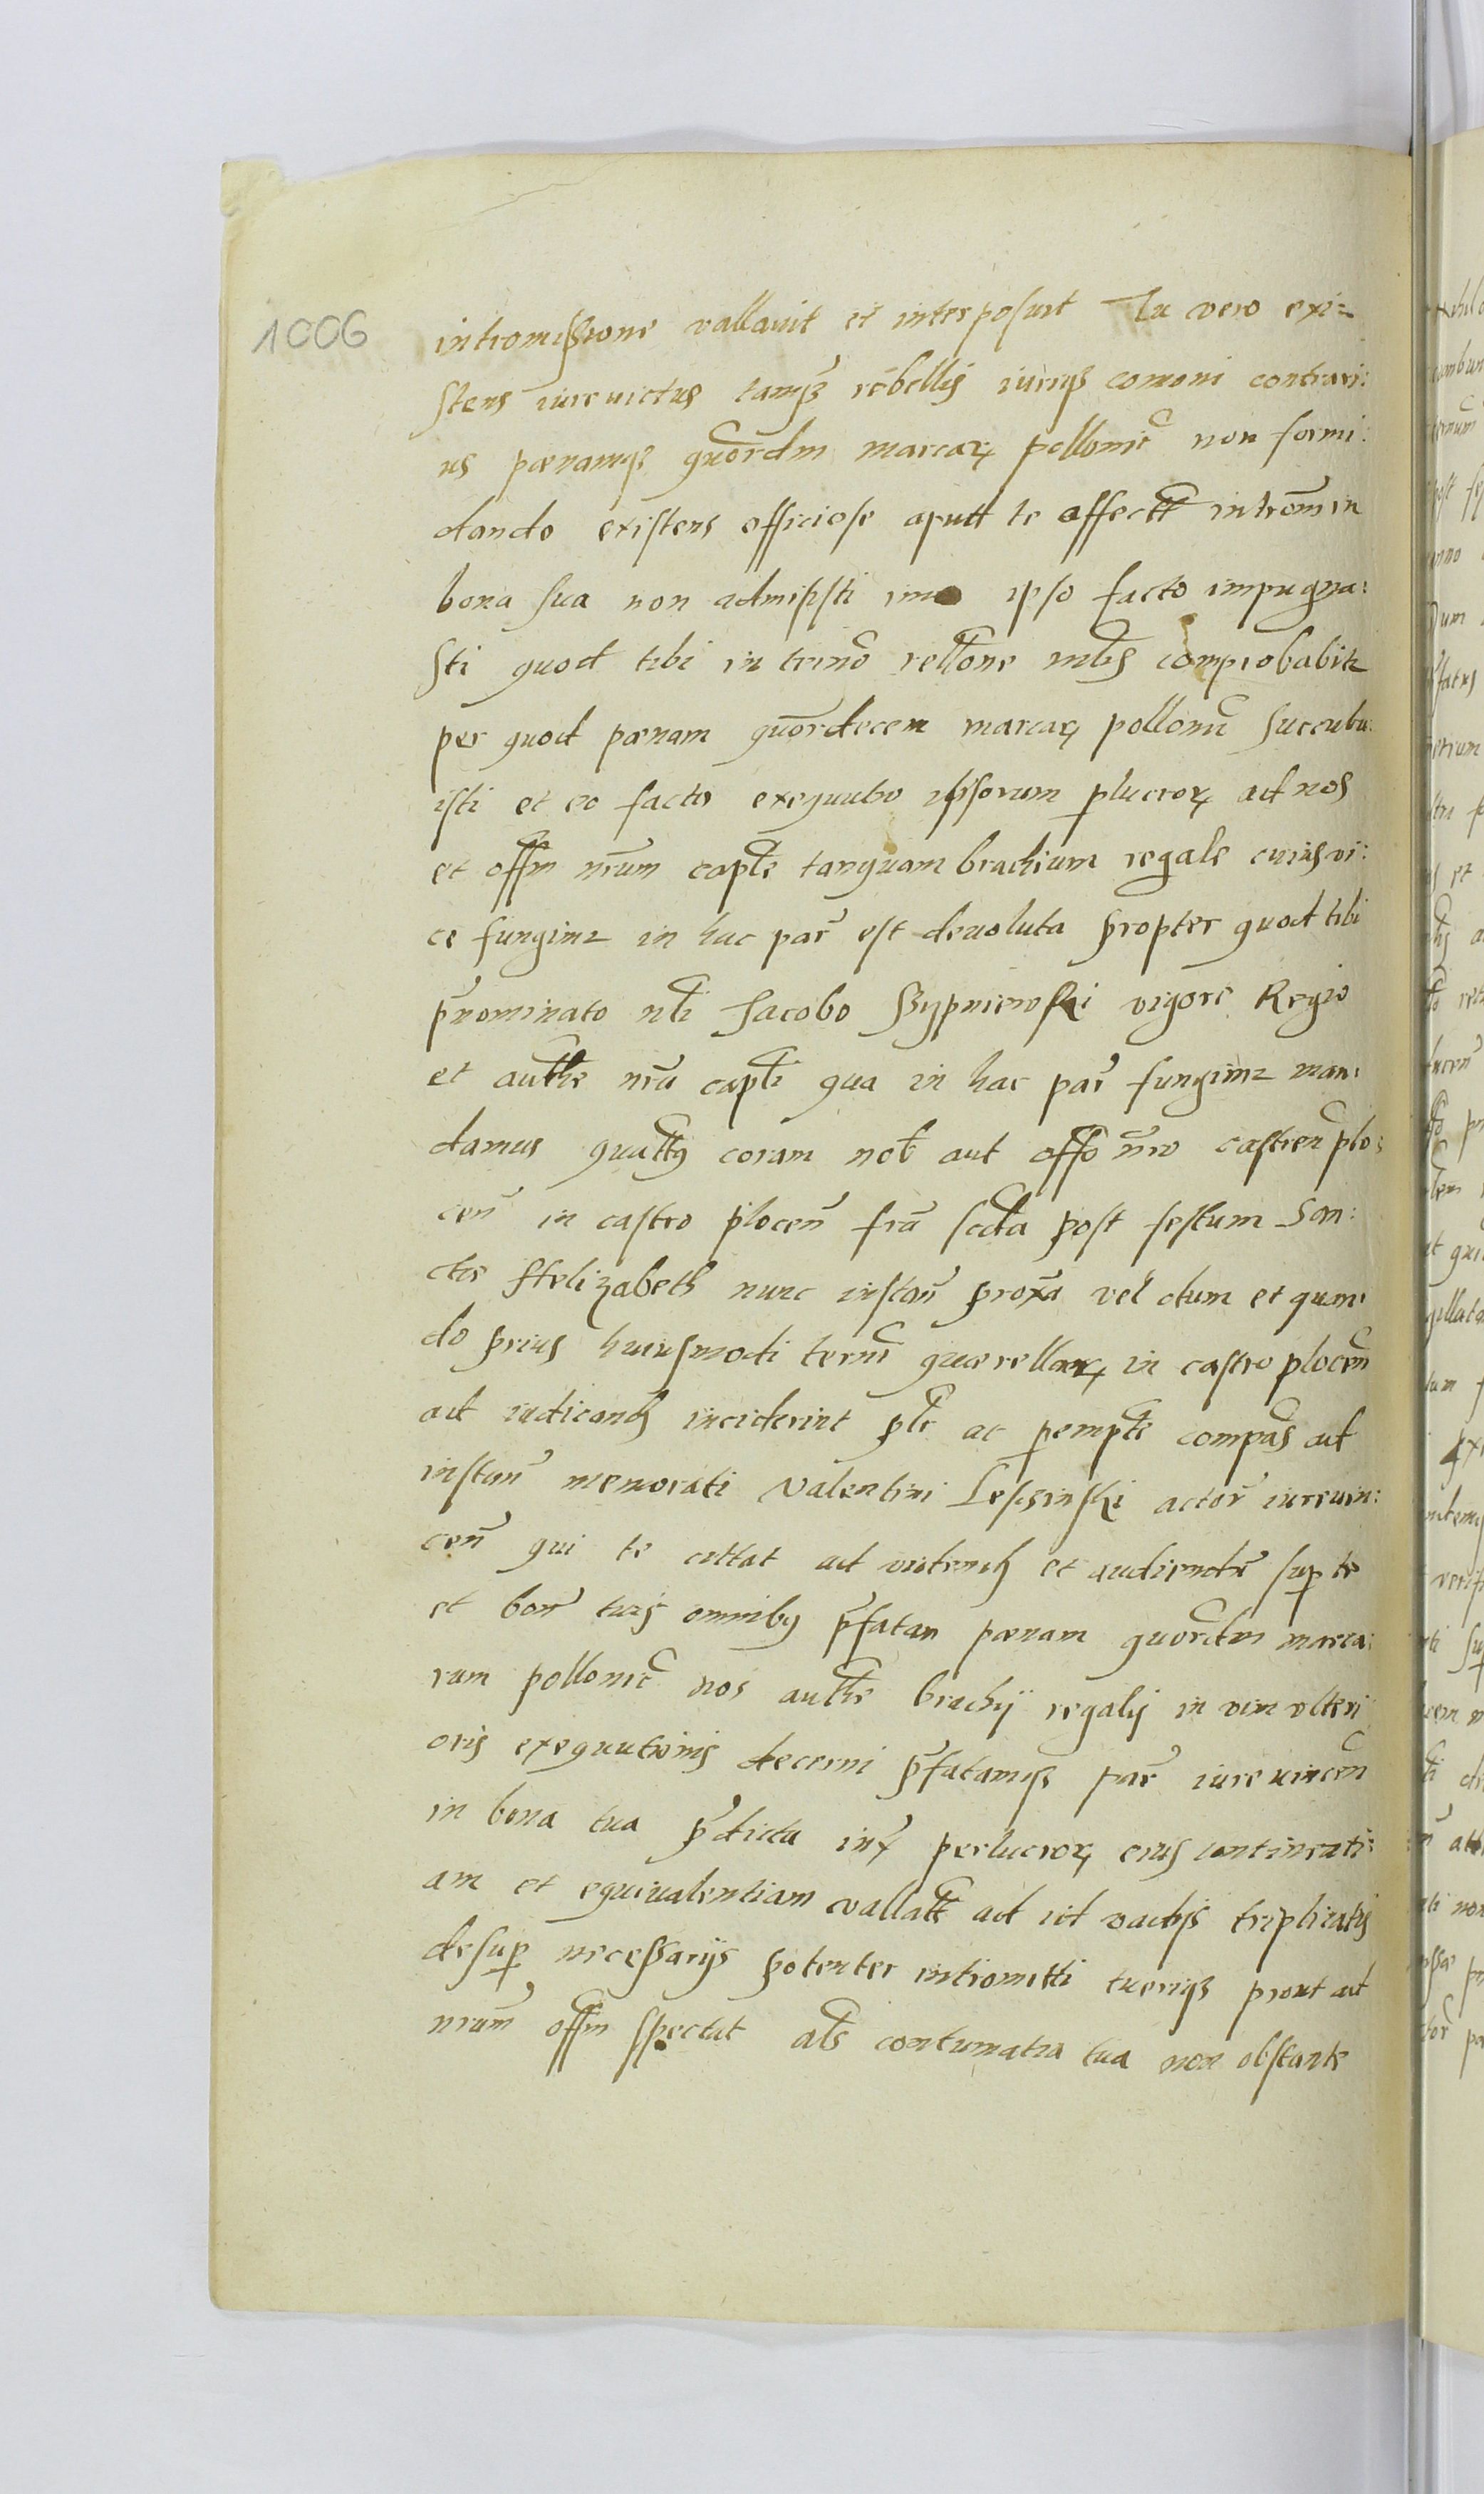 1006
intromissione vallavit et interposuit Tu vero exi=
stens iurevictus tamqȝ rebellis iurisqȝ comoni contrari:
us pœnamqȝ quordm marcarꝝ pollonic non formi:
dando existens officiose aputt te affectt introm in
bona sua non admisisti imo ipso facto impugna:
sti quod tibi in termo rellone mlis comprobabitr
per quod pœnam quordecem marcarꝝ pollonic succubu:
isti et eo facto exequutio ipsorum plucrorꝝ ad nos
et offm nrum caplē tanquam brachium regale cuius vi:
ce fungimr in hac par est devoluta propter quod tibi
prnominato nli Jacobo Szypniewski vigore Regio
et authe nra capli qua in hac par fungimr man:
damus quattꝯ coram nob aut offo nro castren plo:
cen in castro plocen fra scda post festum San:
ctæ Helizabeth nunc instan proxa vel dum et quan:
do prius huiusmodi termi quærellarꝝ in castro plocen
ad iudicand inciderint plr ac pempte compas ad
instan memorati Valentini Lescsinski actor iurevin:
cen qui te cittat ad videnđ et audiendū sup te
et bon tuis omnibꝯ prfatan pœnam quordm marca:
rum pollonic nos authe brachij regalis in vim ulteri
oris exequutionis decerni prfatamqȝ par iurevincen
in bona tua prdicta inx perlucrorꝝ eius continenti:
am et equivalentiam vallatt ad id vadijs triplicatis
desup necessarijs potenter intromitti tueriqȝ prout ad
nrum offm spectat als contumatia tua non obstante